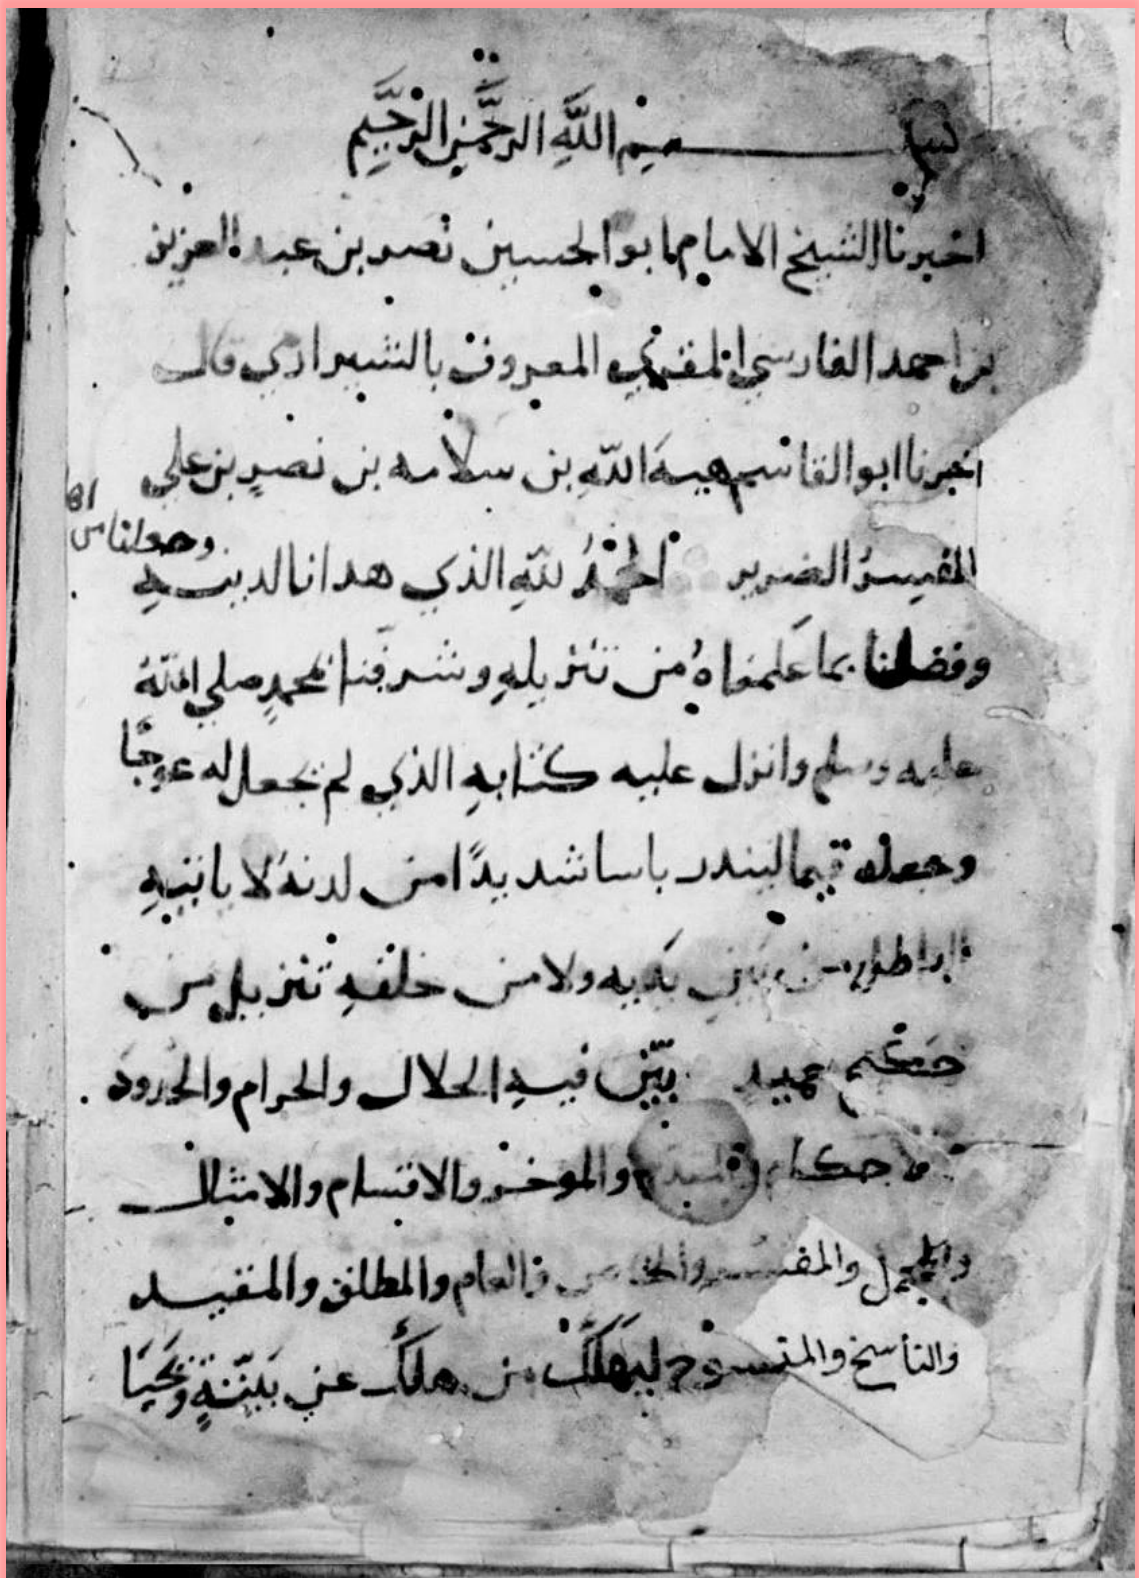 بسم الله الرحمن الرحيم
اخبرنا الشيخ الامام ابو الحسين نصر بن عبد العزيز
بن احمد الفارسي المقري المعروف بالشيرازي قال
اخبرنا ابو القاسم هبة الله بن سلامه بن نصر بن علي
وجعلنا من
المفسرُ الضرير الحمدُ للهِ الذي هدانا لدينـهِ
وفضلنا بما عَلمناهُ من تنزيلهِ وشرفنا بمحمدٍ صلي اللهُ
عليه وسلم وانزل عليه كتابهِ الذي لم يجعل له عوجًا
وجعله قيما لينذر باسا شديدًا من لدنهُ لا ياتيهِ
الباطل من بين يَديه ولا من خلفهِ تنزيل من
حكيم حميدٍ بيّن فيهِ الحلال والحرام والحدود
والاحكام والمقدم والموخر والاقسام والامثال
والمجمل والمفسر والخاص والعام والمطلق والمقيـد
والناسخ والمنسوخ ليَهلَكَ من هلكَ عن بَيّنةٍ ويَحيَا